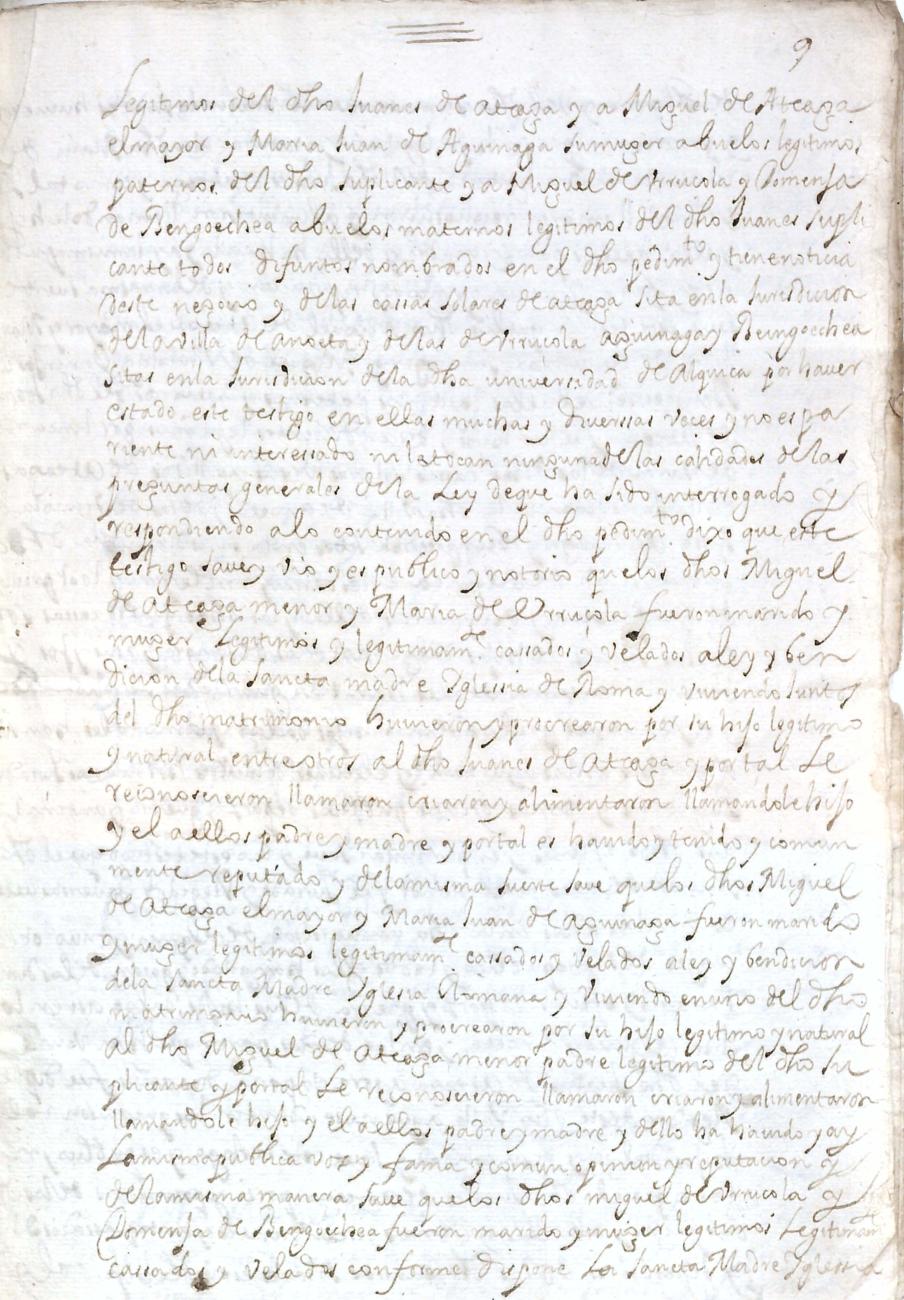 9
Legitimos del dho Juanes de ateaga y a Miguel de Ateaga
elmayor y Maria Juan de Aguinaga sumuger abuelos legitimos
paternos del dho suplicante y a Miguel de Vrrucola y Domenja
de Bengoechea abuelos maternos legitimos del dho Juanes supli
cante todos difuntos nombrados en el dho pedimto y tiene noticia
deste negocio y delas cassas solares de ateaga sita enla Jurisdicion
dela villa de anoeta y delas de Vrrucola aguinaga y Beingoechea
sitas enla Jurisdicion dela dha universidad de Alquiça por haver
estado este testigo en ellas muchas y diverssas veces y no es pa
riente ni interessado ni letocan ninguna delas calidades delas
preguntas generales dela Ley deque ha sido interrogado y
respondiendo alo contenido en el dho pedimto dixo que este
testigo save y vio y es publico y notorio quelos dhos Miguel
de Ateaga menor y Maria de Vrrucola fueron marido y
muger Legitimos y legitimamte cassados y velados aley y ben
dicion dela sancta madre Yglessia de Roma y viviendo juntos
del dho matrimonio huvieron y procrearon por su hijo legitimo
y natural entre otros al dho Juanes de Ateaga y por tal Le
reconoscieron llamaron criaron y alimentaron llamandole hijo
y el aellos padre y madre y portal es havido y tenido y comun
mente reputado y delamisma suerte save quelos dhos Miguel
de Ateaga elmayor y Maria Juan de Aguinaga fueron marido
y muger legitimos legitimamte cassados y velados aley y bendicion
dela sancta Madre Yglesia Romana y viviendo enuno del dho
matrimonio huvieron y procrearon por su hijo legitimo y natural
al dho Miguel de Ateaga menor padre legitimo del dho su
plicante y portal Le reconoscieron llamaron criaron y alimentaron
llamandole hijo y el aellos padre y madre y dello ha havido y ay
Lamisma publica voz y fama y comun opinion y reputacion y
delamisma manera save quelos dhos miguel de Vrrucola y
Domenja de Bengoechea fueron marido y muger legitimos Legitimam
cassados y velados conforme dispone La sancta Madre Yglessia